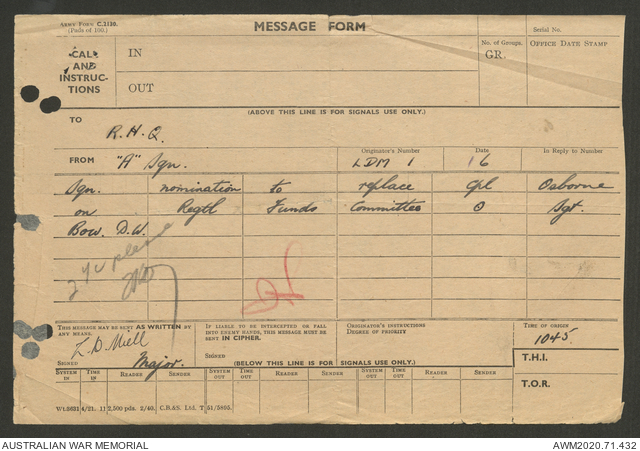 Army Form C.2130.
(Pads of 100.)
MESSAGE FORM
Serial No.
CALL AND INSTRUC-TIONS
IN
OUT
No. of Groups.
GR.
OFFICE DATE STAMP
(ABOVE THIS LINE IS FOR SIGNALS USE ONLY.)
TO
R.H.Q.
FROM "A" Sqn.
Originator's Number
LDM 1
Date
16
In Reply to Number
Sqn. nomination to replace Cpl Osborne
on Regtl Funds Committee Sgt.
Bow. D.W.
2 i/c please
THIS MESSAGE MAY BE SENT AS WRITTEN BY ANY MEANS.
IF LIABLE TO BE INTERCEPTED OR FALL INTO ENEMY HANDS, THIS MESSAGE MUST BE SENT IN CIPHER.
ORIGINATOR'S INSTRUCTIONS
DEGREE OF PRIORITY
TIME OF ORIGIN
1045
SIGNED
Major.
SIGNED
(BELOW THIS LINE IS FOR SIGNALS USE ONLY.)
T.H.I.
T.O.R.
SYSTEM IN
TIME IN
READER
SENDER
SYSTEM OUT
TIME OUT
READER
SENDER
SYSTEM OUT
TIME OUT
READER
SENDER
2/40. C.B.&S. Ltd. T 51/5803.
AUSTRALIAN WAR MEMORIAL
AWM2020.71.432